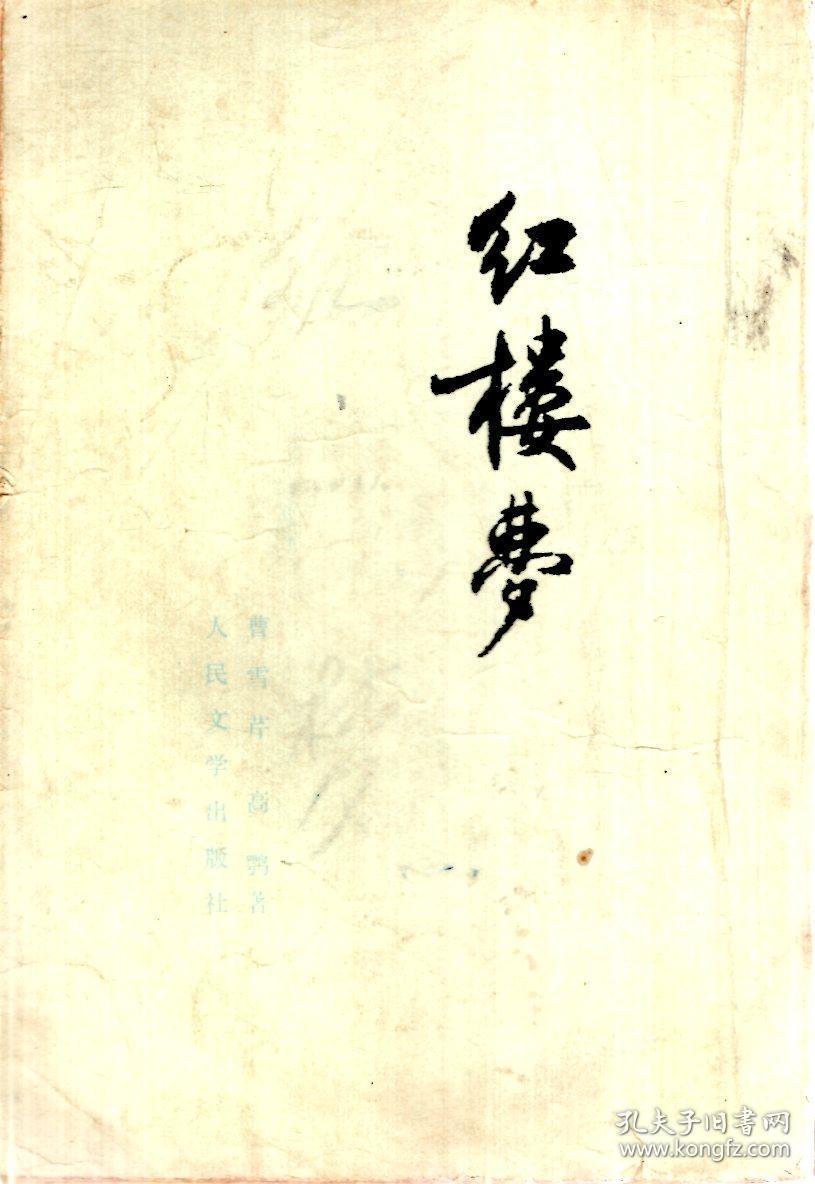 红楼梦
曹雪芹 高鹗著
人民文学出版社
孔夫子旧书网
www.kongfz.com